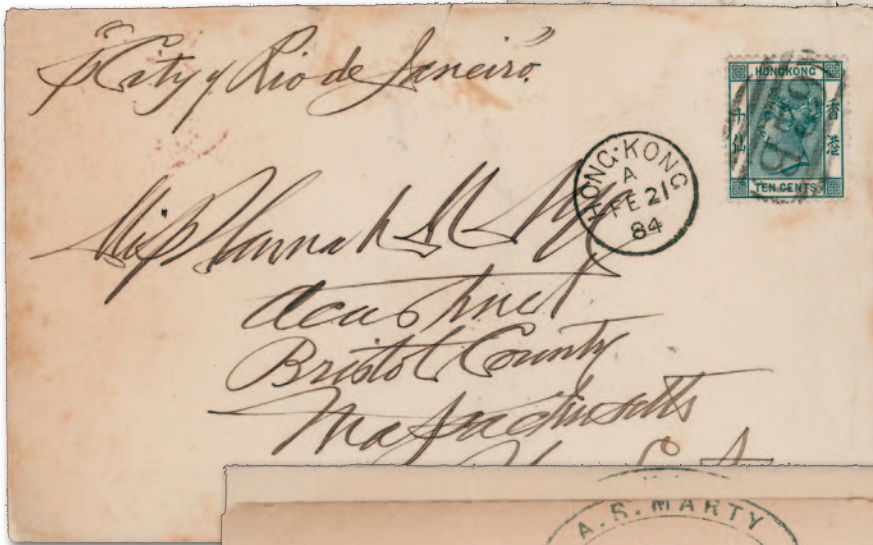 p "City of Rio de Janeiro"
HONGKONG
十仙
香港
TEN CENTS
B62
HONG-KONG
A
FE 21
84
Miss Hannah M Nye
Acushnet
Bristol County
Massachusetts
U S A
A. R. MARTY